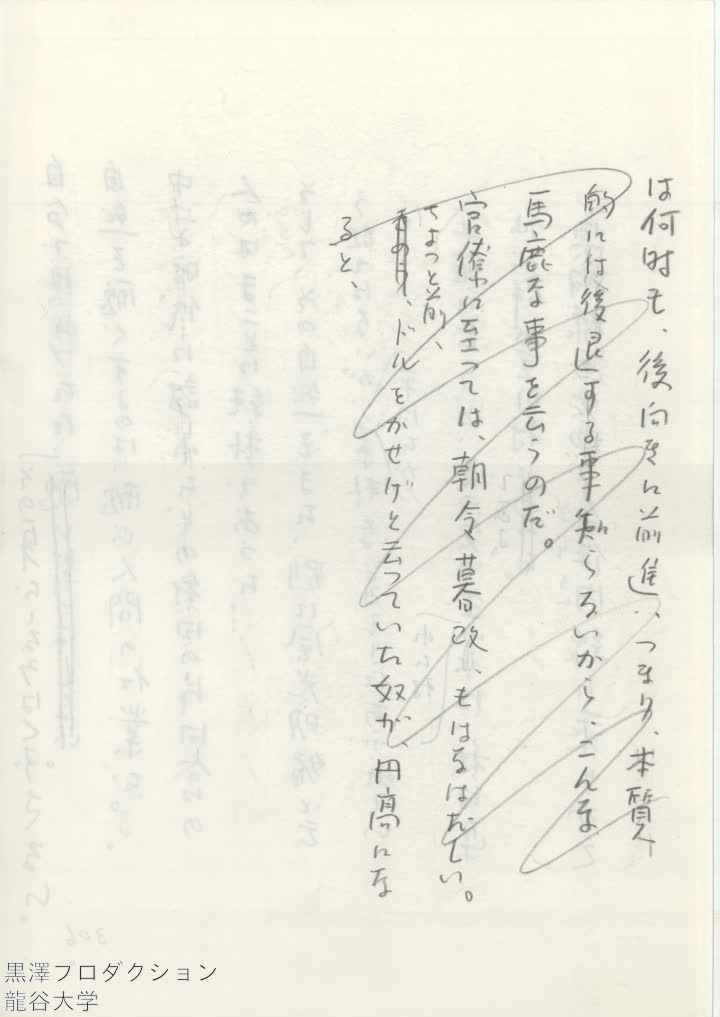 は何時も、後向きに前進、、つまり、本質
的には後退する事知らないから、こんな
馬鹿な事を云うのだ。
官僚に至っては、朝令暮改、もはなはだしい。
ちょっと前、
ドルをかせげと云っていた奴が、円高にな
ると、
黒澤プロダクション
龍谷大学